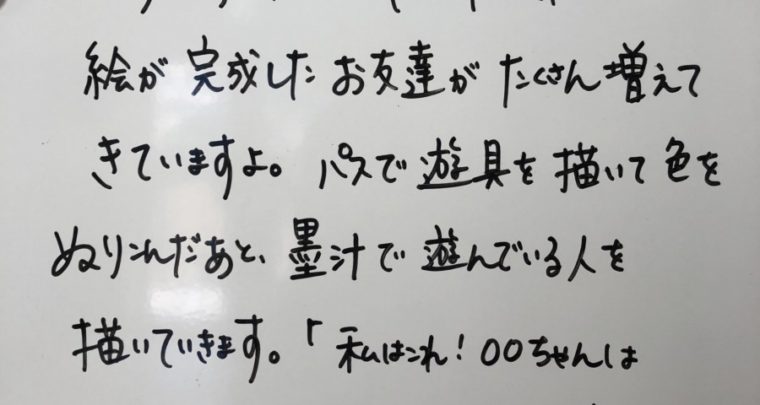 絵が完成したお友達がたくさん増えて
きていますよ。パスで遊具を描いて色を
ぬりこんだあと、墨汁で遊んでいる人を
描いていきます。「私はこれ！〇〇ちゃんは